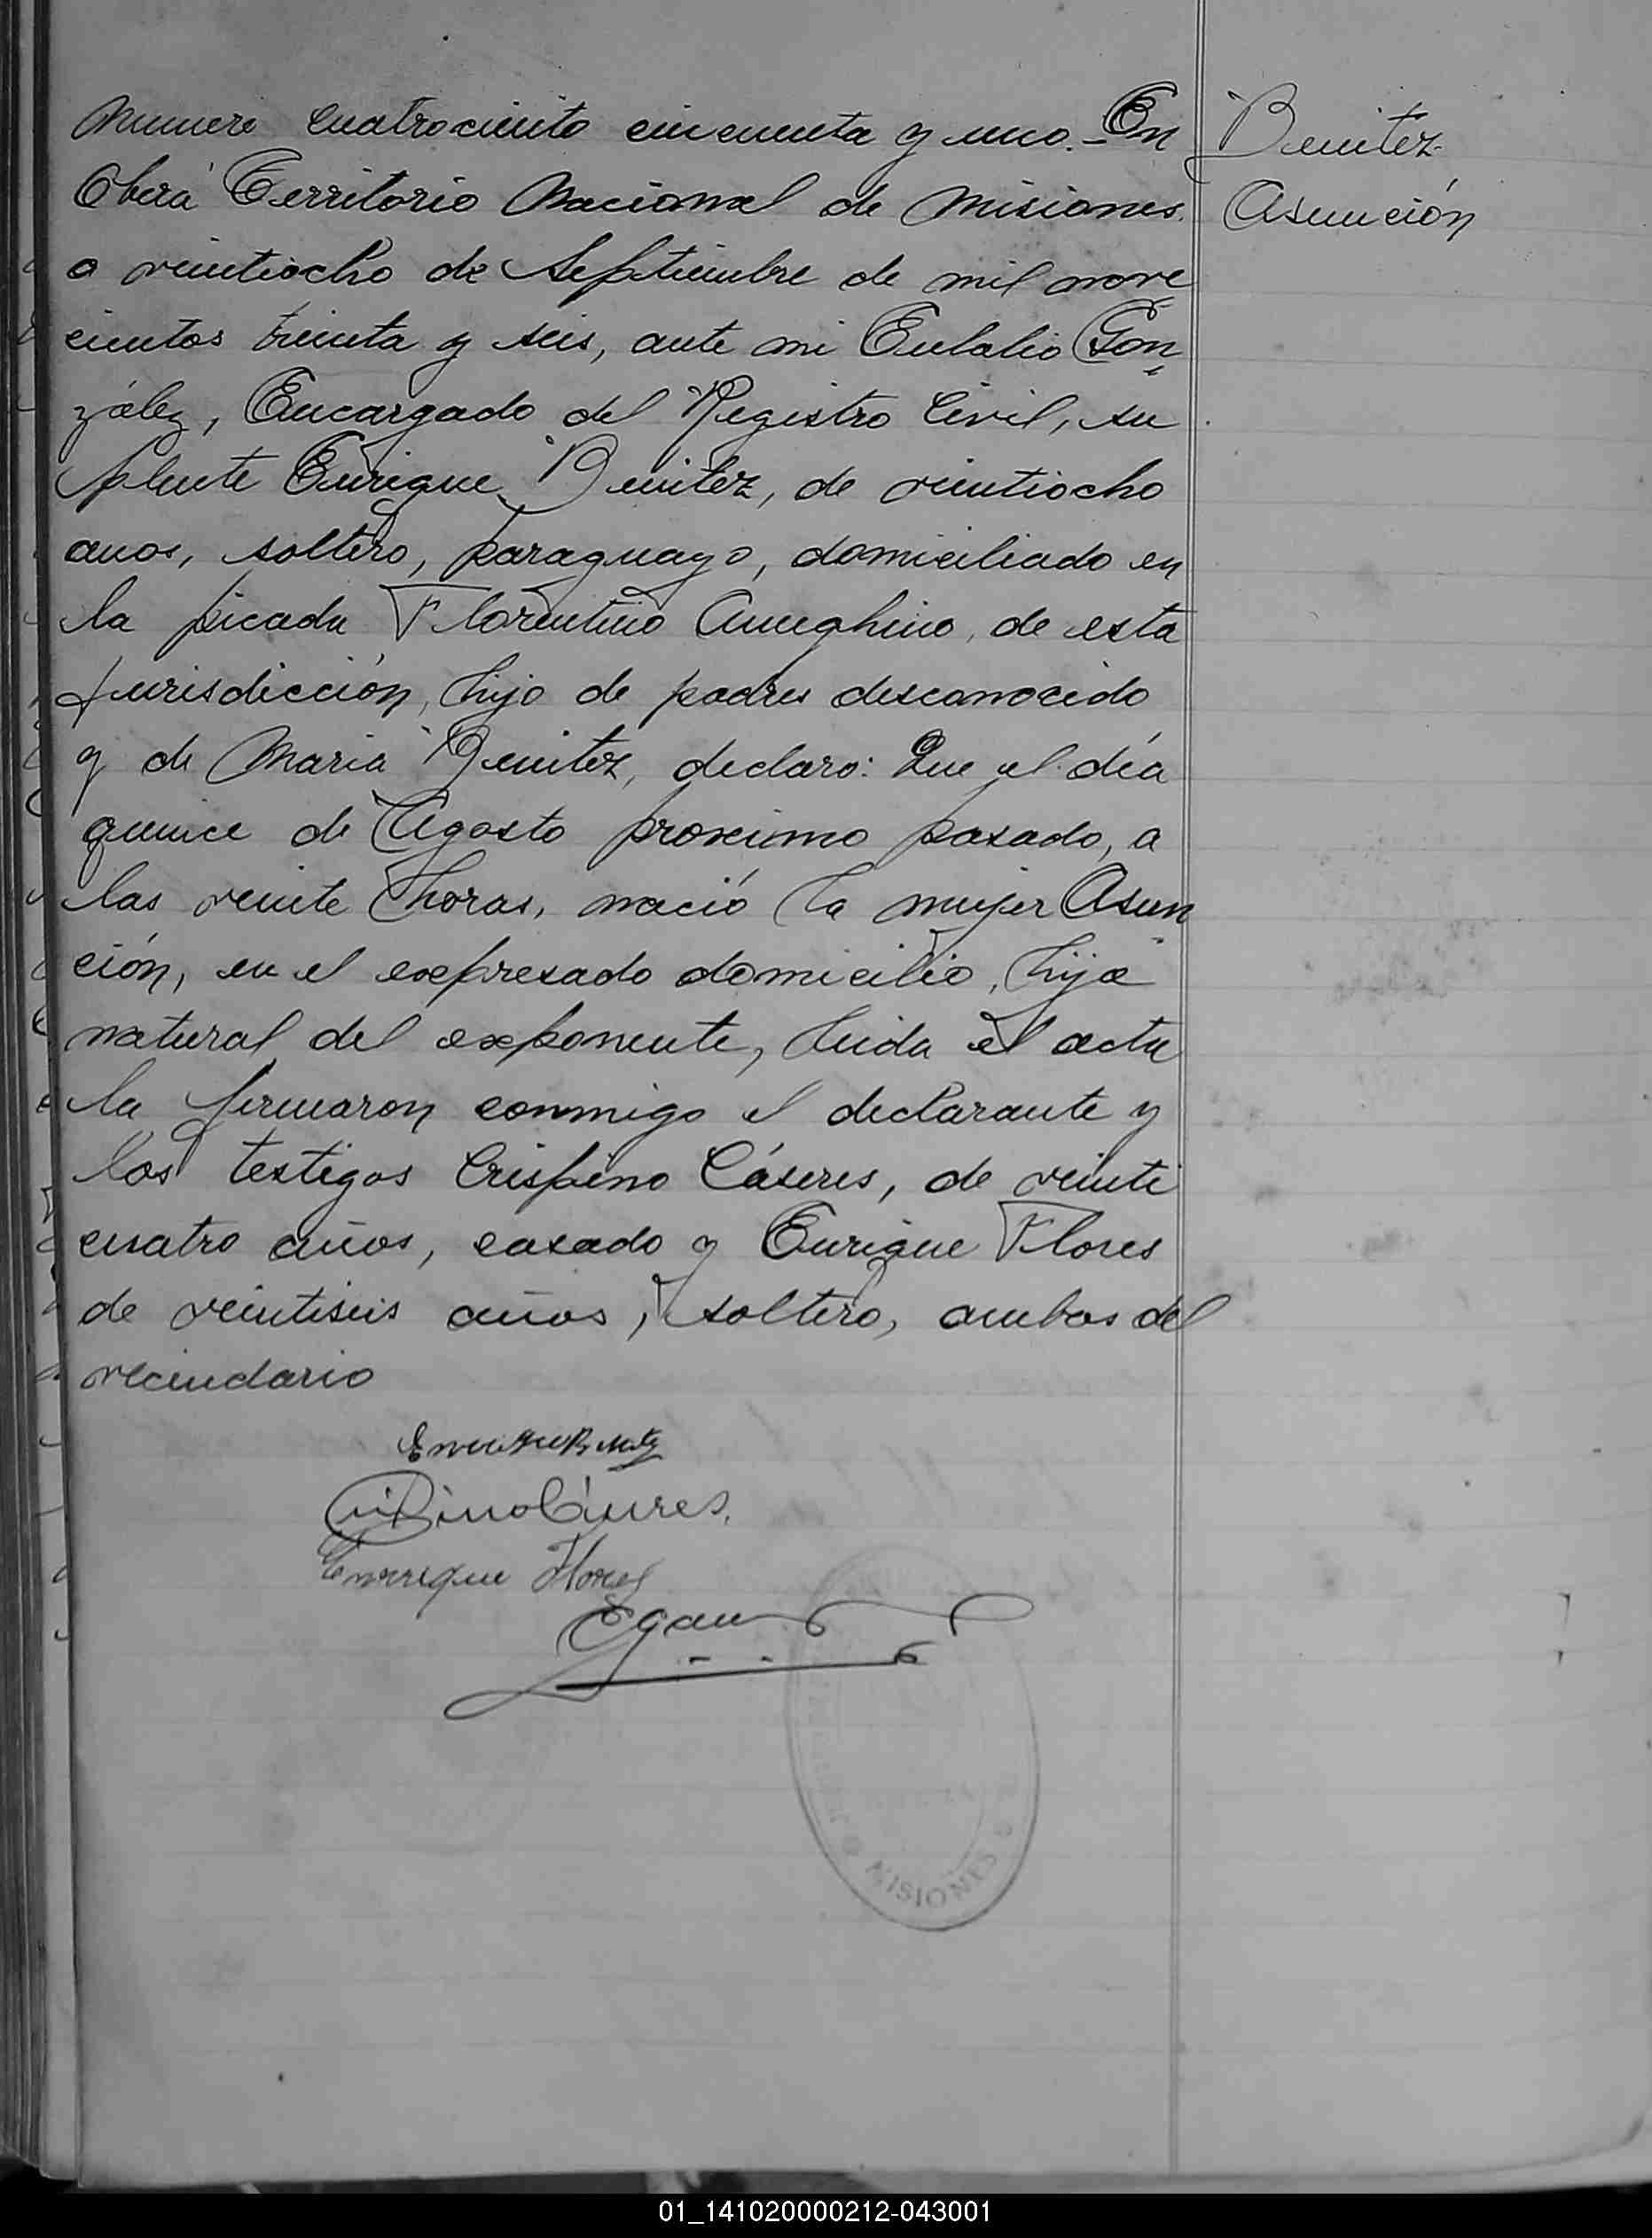 Numero cuatrociento cincuenta y uno.- En
Oberá Territorio Nacional de Misiones.
a veintiocho de Septiembre de mil nove
cientos treinta y seis, ante mi Eulalio Gon
zález, Encargado del Registro Civil, su
plente Enrique Benitez, de veintiocho
anos, soltero, paraguayo, domiciliado en
la picada Florentino Ameghino, de esta
jurisdicción, hijo de padres desconocido
y de Maria Benitez, declaro: Que el día
quince de Agosto proximo pasado, a
las veinte horas, nació la mujer Asun
ción, en el expresado domicilio, hija
natural del exponente, leida el acta
la firmaron conmigo el declarante y
los testigos Crispino Cáseres, de veinti
cuatro años, casado y Enrique Flores
de veintiseis años, soltero, ambos del
vecindario
Benitez
Asunción
Enrrique Flores
MISIONES
01_141020000212-043001